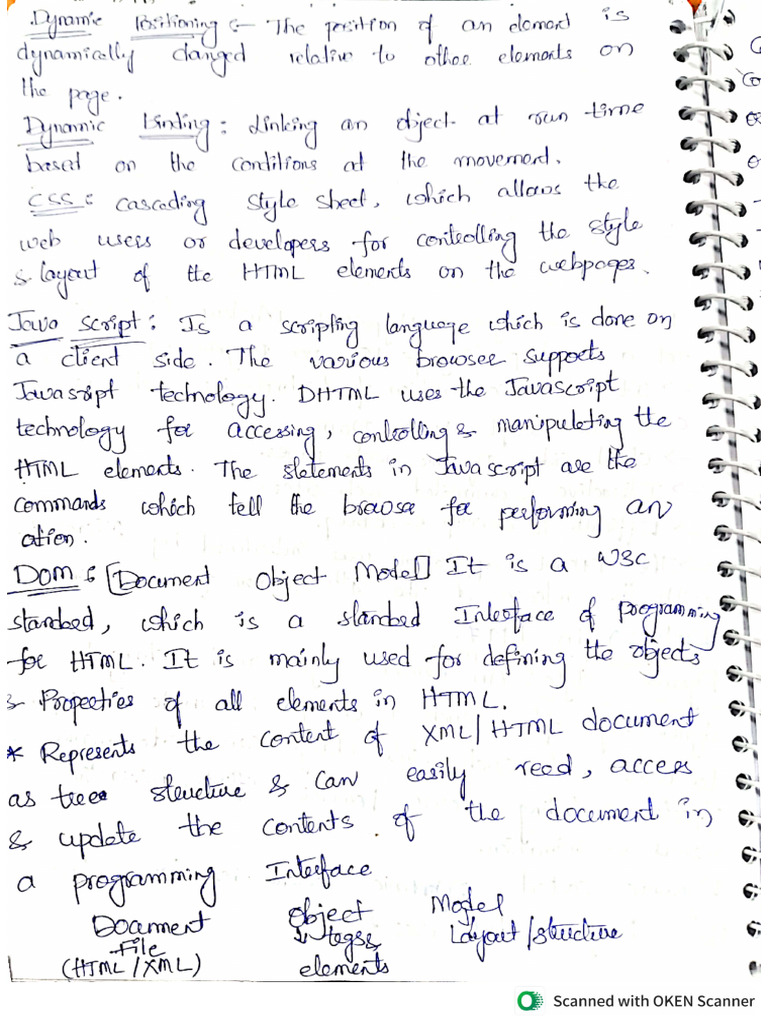 Dynamic Positioning :- The position of an element is
dynamically changed relative to other elements on
the page.
Dynamic Binding : Linking an object at run time
based on the conditions at the movement.
CSS : cascading style sheet, which allows the
web users or developers for controlling the style
& layout of the HTML elements on the webpages.
Java script : Is a scripting language which is done on
a client side. The various browser supports
Javasript technology. DHTML uses the Javascript
technology for accessing, controlling & manipulating the
HTML elements. The statements in Javascript are the
commands which tell the browser for performing an
ation.
DOM : [Document Object Model] It is a W3C
standard, which is a standard Interface of programming
for HTML. It is mainly used for defining the objects
& Properties of all elements in HTML.
* Represents the content of XML/HTML document
as tree structure & can easily read, access
& update the contents of the document in
a programming Interface
Document Object Model
File ↓ tags & Layout/structure
(HTML/XML) elements
Scanned with OKEN Scanner